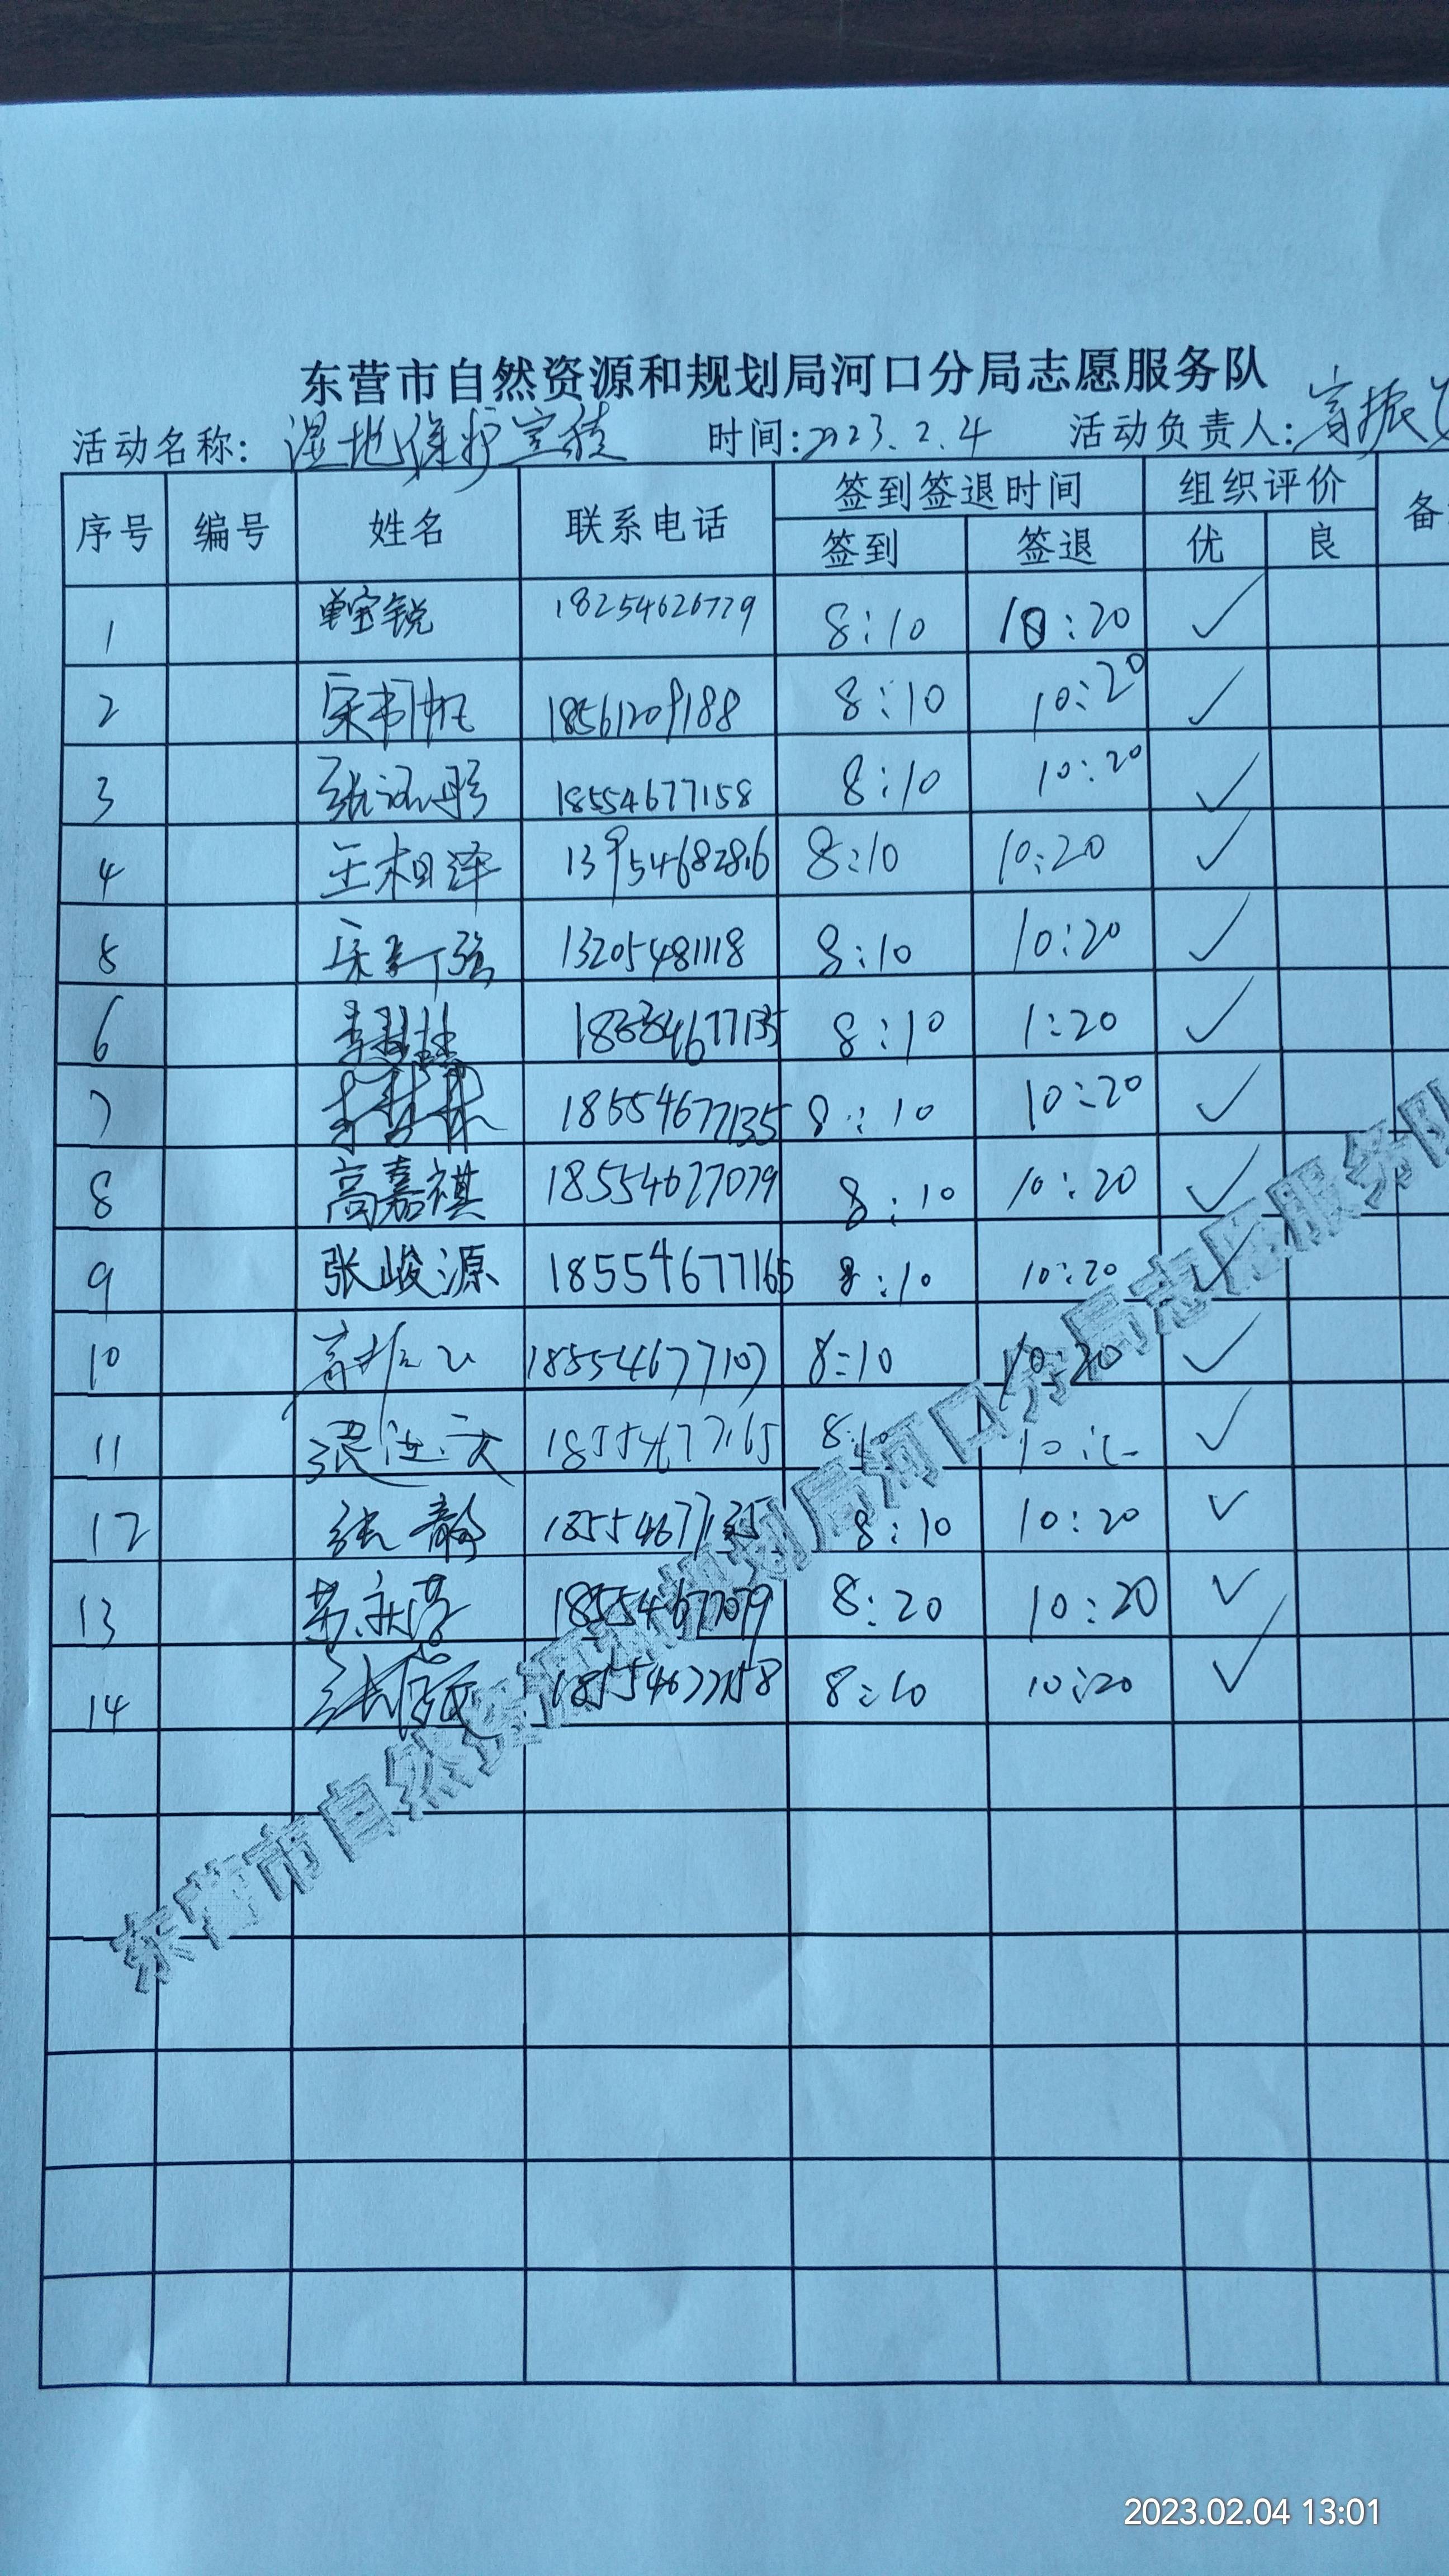 东营市自然资源和规划局河口分局志愿服务队
活动名称: 湿地保护宣传 时间:2023.2.4 活动负责人:
序号 编号 姓名 联系电话 签到签退时间 组织评价 备
签到 签退 优 良
1 单宝锐 18254626779 8:10 10:20 ✓
2 18561209188 8:10 10:20 ✓
3 18554677158 8:10 10:20 ✓
4 王相泽 13954682816 8:10 10:20 ✓
5 13205481118 8:10 10:20 ✓
6 18554677135 8:10 1:20 ✓
7 18554677135 8:10 10:20 ✓
8 高嘉祺 18554677079 8:10 10:20 ✓
9 张峻源 18554677165 8:10 10:20 ✓
10 18554677107 8:10 10:20 ✓
11 18554677165 8:10 ✓
12 张静 8:10 10:20 ✓
13 18554677079 8:20 10:20 ✓
14 18554677158 8:10 10:20 ✓
东营市自然资源和规划局河口分局志愿服务队
2023.02.04 13:01